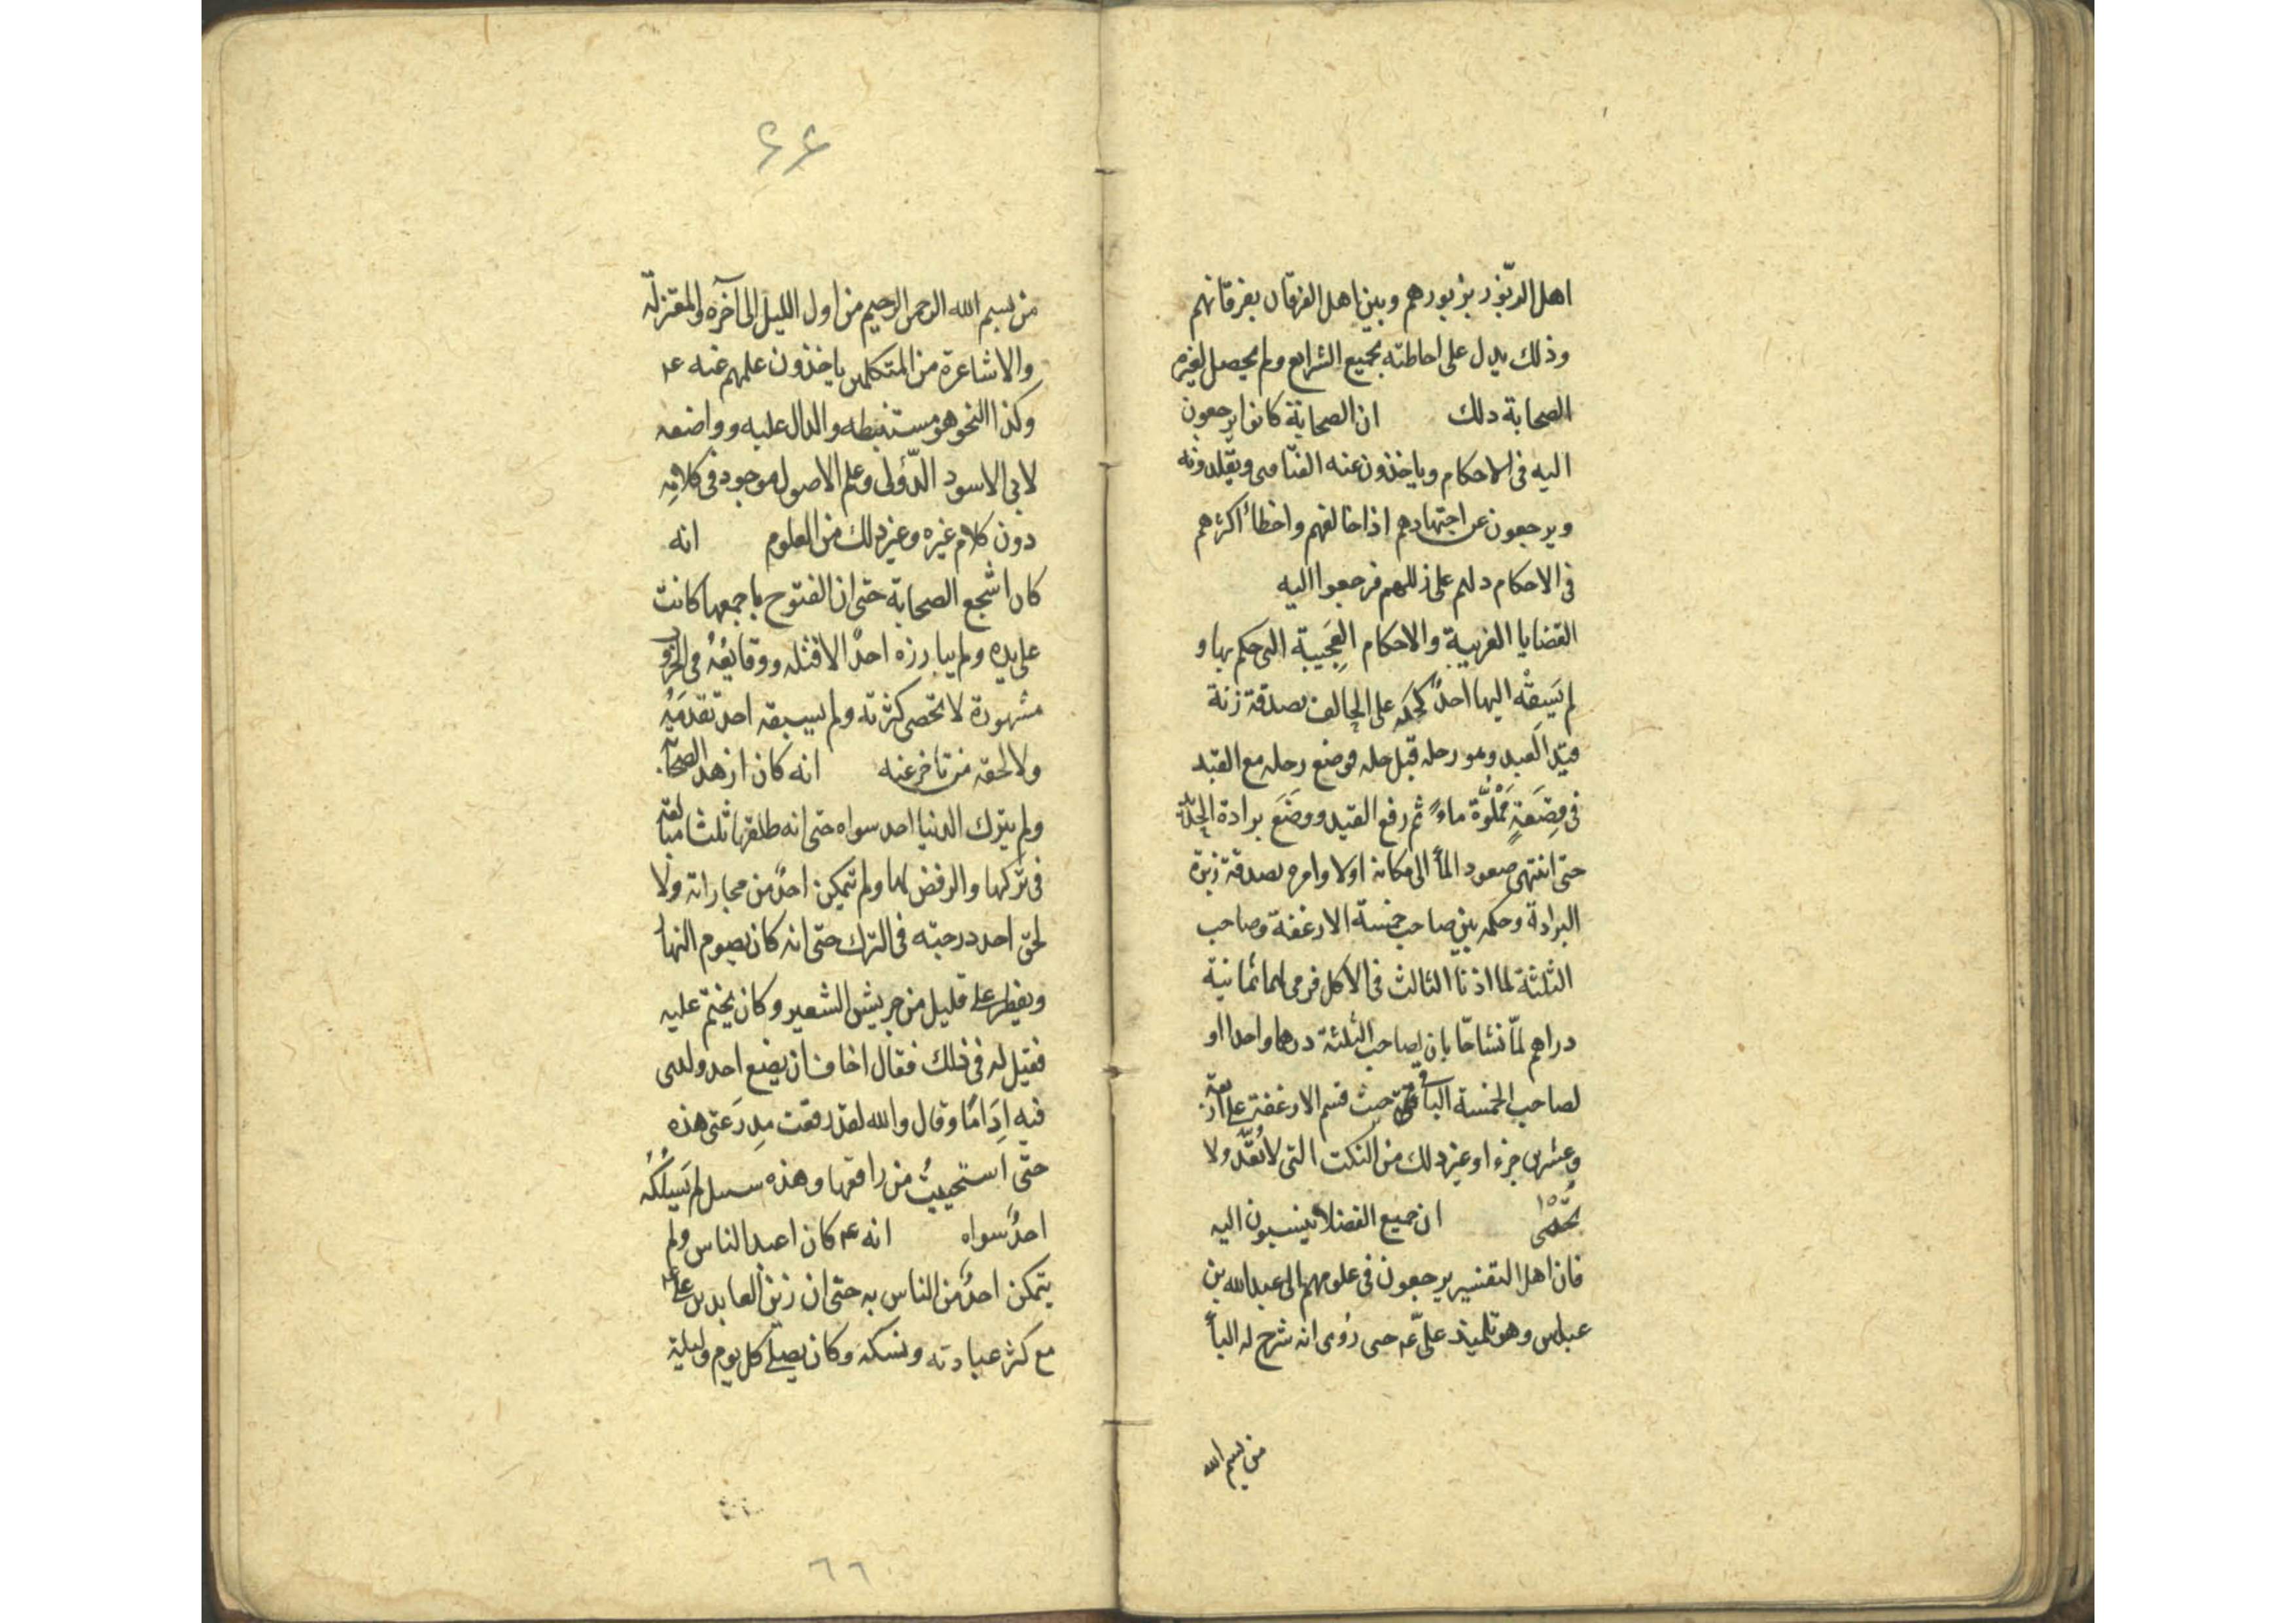 اهل الزبور بزبورهم وبين اهل الفرقان بفرقانهم
وذلك يدل على احاطته بجميع الشرايع ولم يحصل لغيره
الصحابة ذلك ان الصحابة كانوا يرجعون
اليه فى الاحكام وياخذون عنه الفتاوى ويقلدونه
ويرجعون عن اجتهادهم اذا خالفهم واخطأ اكثرهم
فى الاحكام دلهم على زللهم فرجعوا اليه
القضايا الغريبة والاحكام العجيبة التى حكم بها و
لم يسبقه اليها احدٌ كحكمه على الحالف بصدقة زنة
قيد العبد وهو رحله قبل حله فوضع رحله مع القيد
فى قصعةٍ مملوّة ماءً ثم رفع القيد ووضع برادة الحديد
حتى انتهى صعود الماء الى مكانه اولا وامره بصدقة زنة
البرادة وحكمه بين صاحب خمسة الارغفة وصاحب
الثلثة لما اذنا الثالث فى الاكل فرمى لهما ثمانية
دراهم لمّا تشاحّا بان لصاحب الثلثة درهما واحدا و
لصاحب الخمسة الباقى حيث قسم الارغفة على اربعة
وعشرين جزءا وغير ذلك من النكت التى لا تُعَدّ ولا
تُحصى ان جميع الفضلاء ينسبون اليه
فان اهل التفسير يرجعون فى علومهم الى عبد الله بن
عباس وهو تلميذ علىّ عه حتى روى انه شرح له الباء
من بسم الله
۶۶
من بسم الله الرحمن الرحيم من اول الليل الى آخره والمعتزلة
والاشاعرة من المتكلمين ياخذون علمهم عنه عه
وكذا النحو هو مستنبطه والدال عليه وواضعه
لابى الاسود الدّؤلى وعلم الاصول موجود فى كلامه
دون كلام غيره وغير ذلك من العلوم انه
كان اشجع الصحابة حتى ان الفتوح باجمعها كانت
على يده ولم يبارزه احدٌ الا قتله ووقايعُهُ فى الحروب
مشهورة لا تحصى كثرته ولم يسبقه احد تقدمه
ولا لحقه من تأخر عنه انه كان ازهد الصحابة
ولم يترك الدنيا احد سواه حتى انه طلقها ثلثا مبالغة
فى تركها والرفض لها ولم يتمكن احدٌ من مجاراته ولا
لحق احد درجته فى الترك حتى انه كان يصوم النهار
ويفطر على قليل من جريش الشعير وكان يختم عليه
فقيل له فى ذلك فقال اخاف ان يضع احد ولدى
فيه اِدَامًا وقال والله لقد رقعت مدرعتى هذه
حتى استحييتُ من راقعها وهذه سبيل لم يَسلُكهُ
احدٌ سواه انه عه كان اعبد الناس ولم
يتمكن احدٌ من الناس به حتى ان زين العابدين عليه
مع كثر عبادته ونسكه وكان يصلى كل يوم وليلة
٦٦